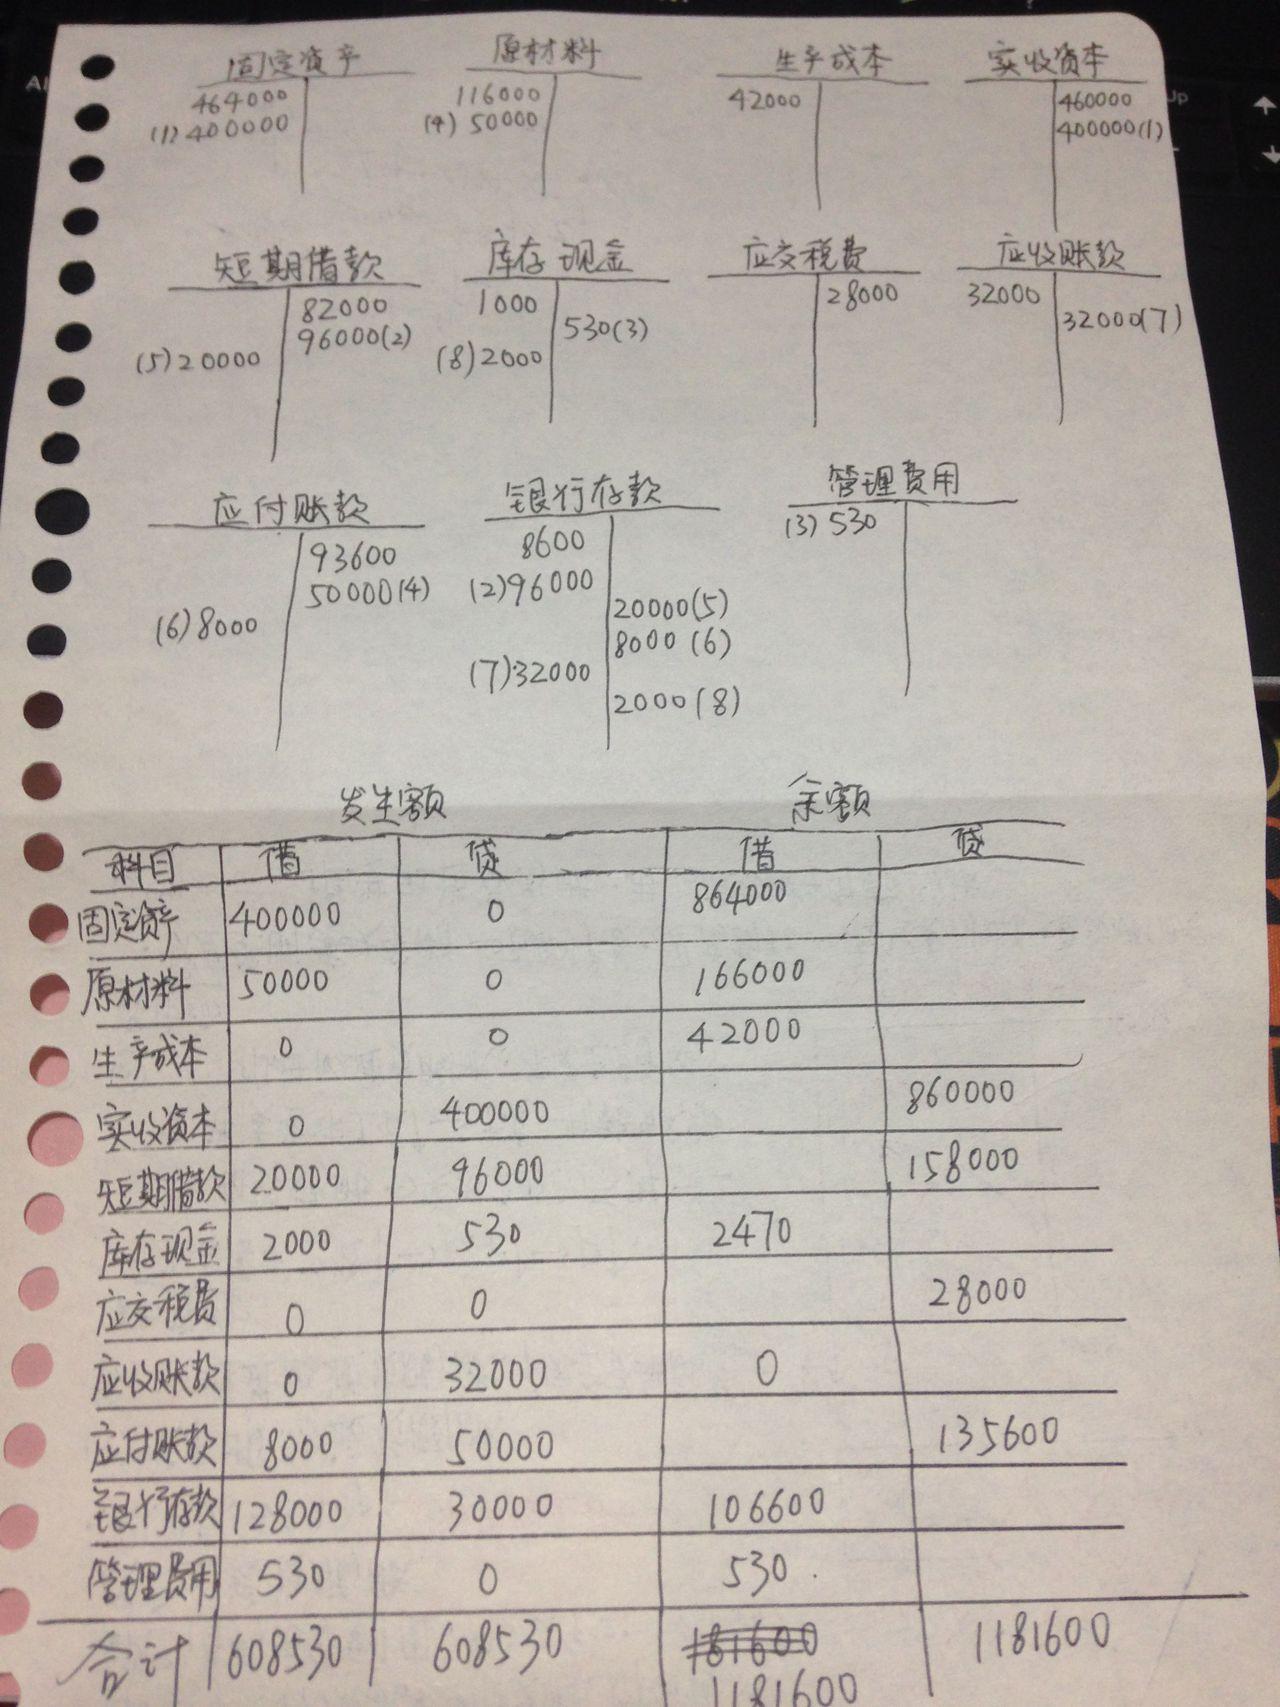 固定资产 原材料 生产成本 实收资本
464000 116000 42000 460000
(1)400000 (4) 50000 400000(1)
短期借款 库存现金 应交税费 应收账款
82000 1000 28000 32000
96000(2) 530(3) 32000(7)
(5)20000 (8)2000
应付账款 银行存款 管理费用
93600 8600 (3)530
50000(4) (2)96000
(6)8000 20000(5)
8000(6)
(7)32000
2000(8)
发生额 余额
科目 借 贷 借 贷
固定资产 400000 0 864000
原材料 50000 0 166000
生产成本 0 0 42000
实收资本 0 400000 860000
短期借款 20000 96000 158000
库存现金 2000 530 2470
应交税费 0 0 28000
应收账款 0 32000 0
应付账款 8000 50000 135600
银行存款 128000 30000 106600
管理费用 530 0 530
合计 608530 608530 181600 1181600
1181600